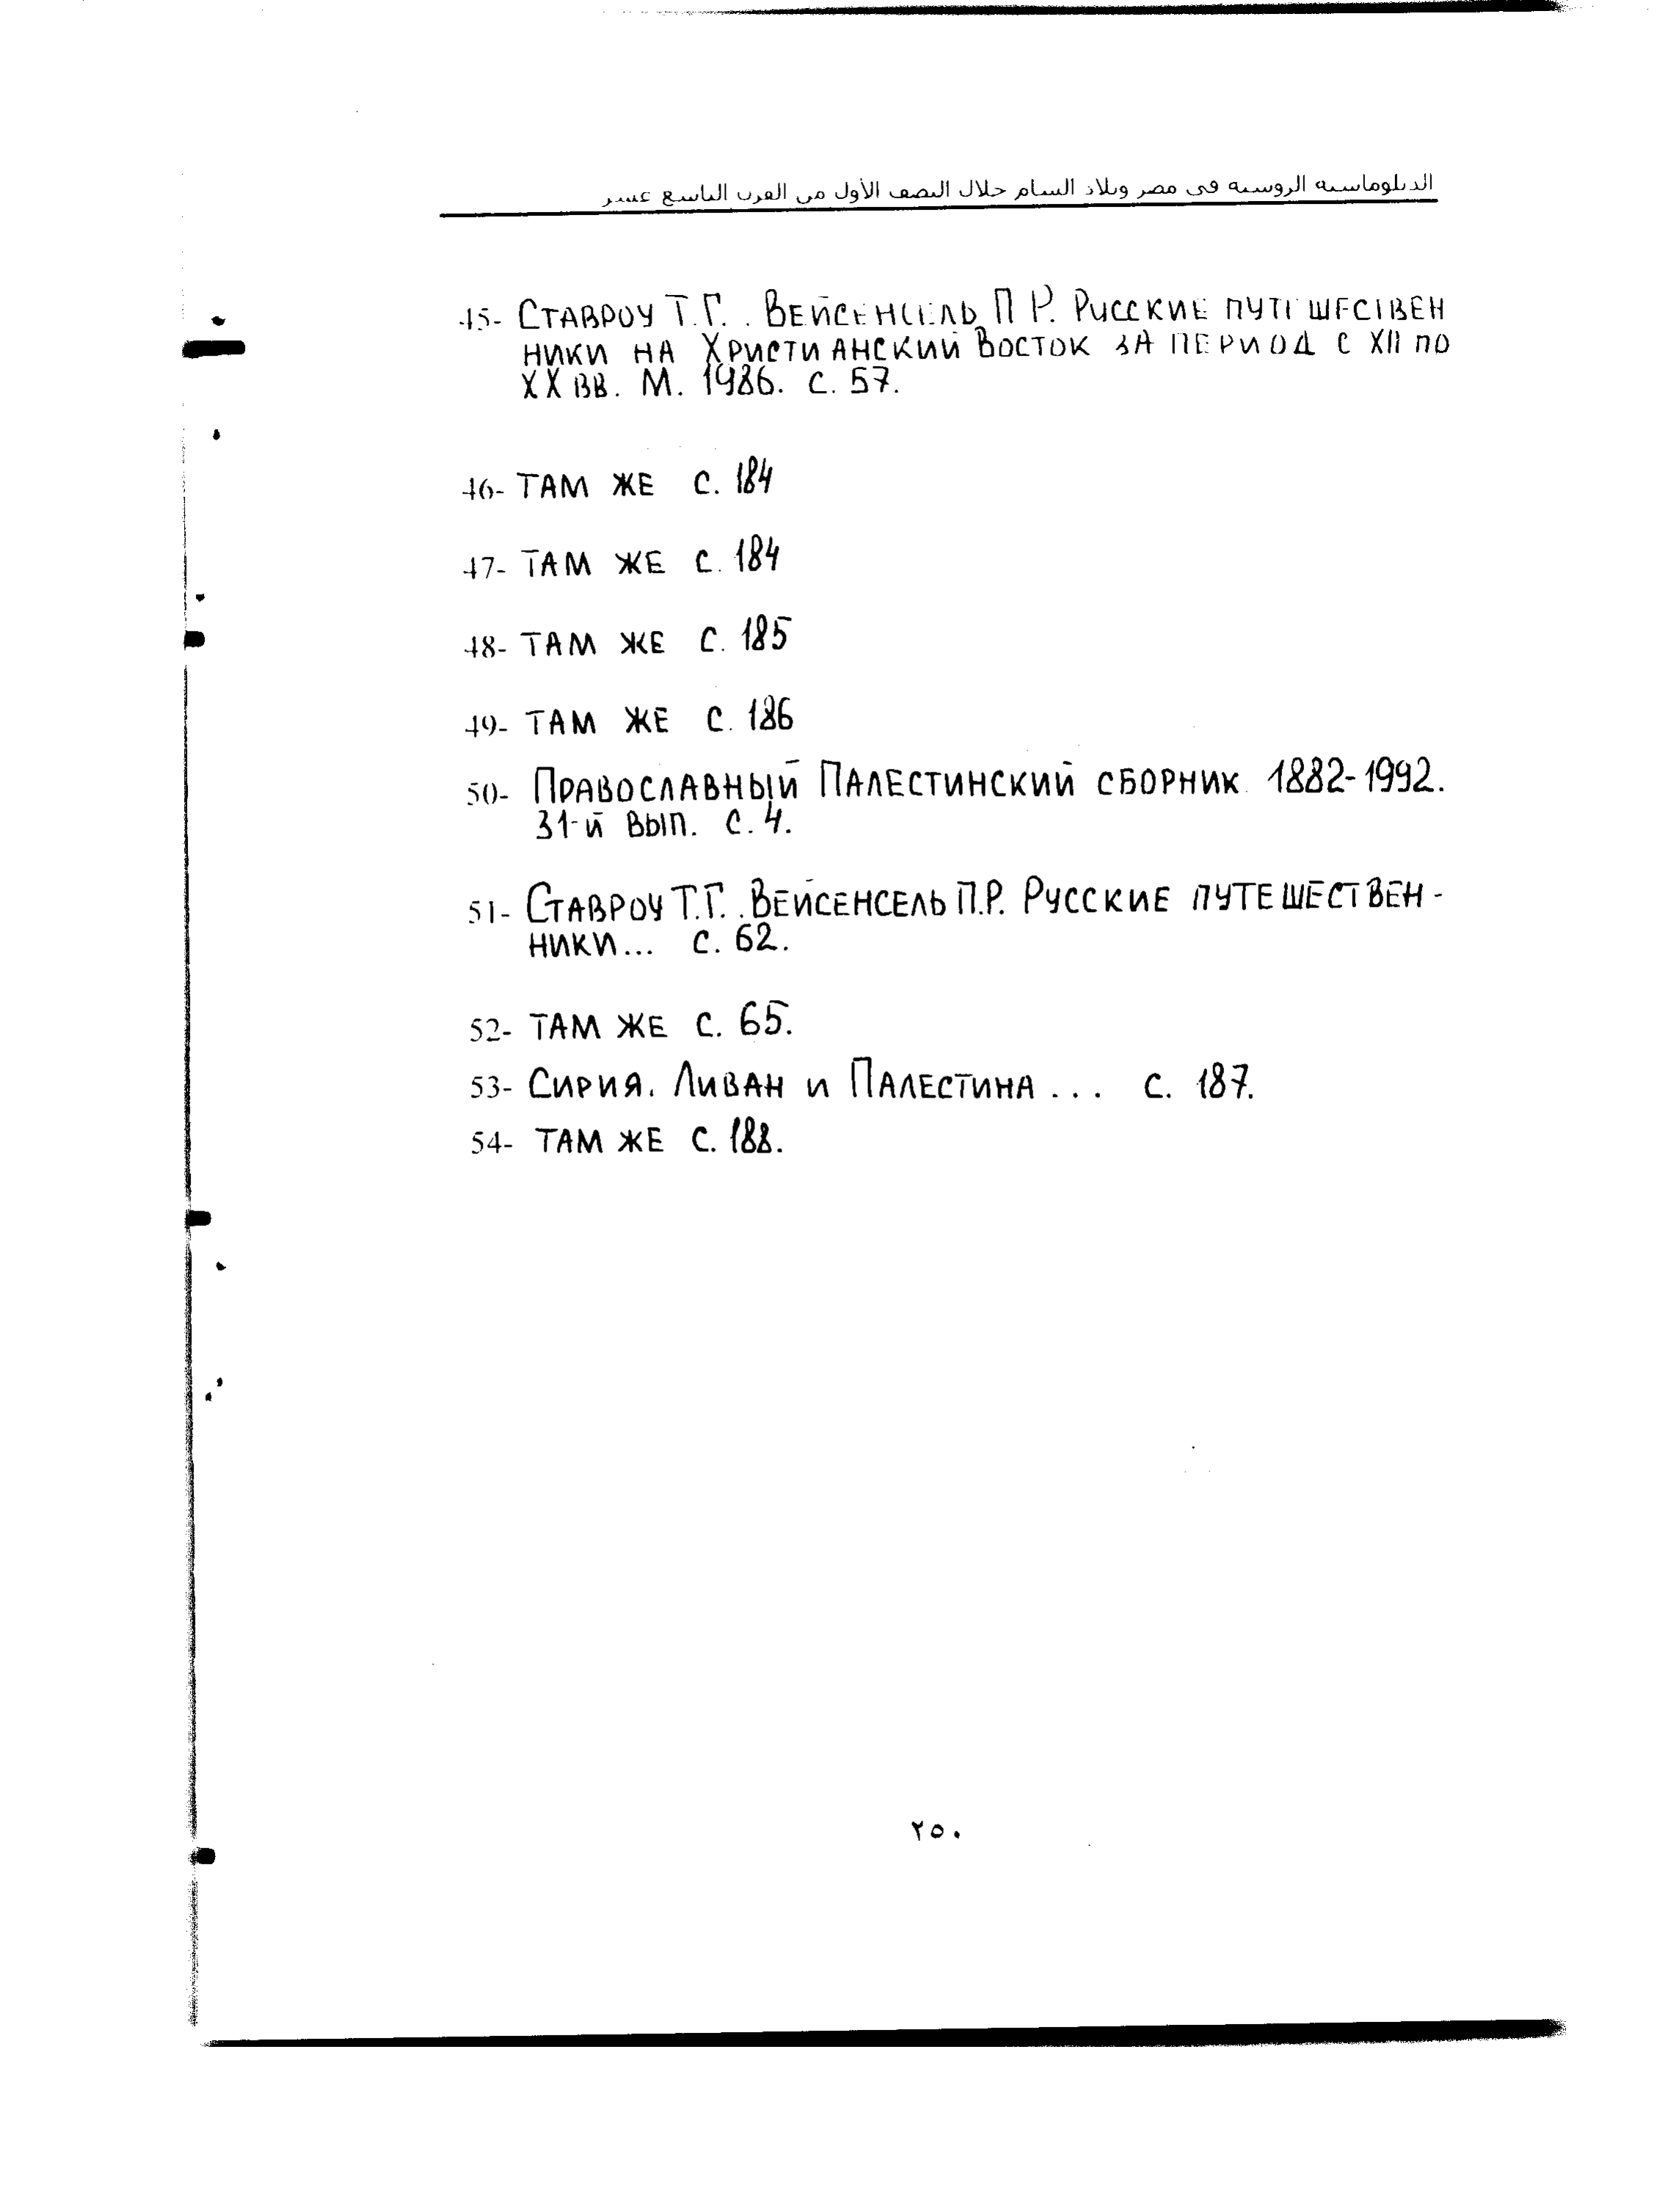 الدبلوماسية الروسية فى مصر وبلاد الشام خلال النصف الأول من القرن التاسع عشر
45- Ставроу Т.Г.. Вейсенсель П Р. Русские путешествен
ники на Христианский Восток за период с XII по
XX вв. М. 1986. с. 57.
46- Там же с. 184
47- Там же с. 184
48- Там же с. 185
49- Там же с. 186
50- Православный Палестинский сборник 1882-1992.
31-й вып. с. 4.
51- Ставроу Т.Г. .Вейсенсель П.Р. Русские путешествен-
ники... с. 62.
52- Там же с. 65.
53- Сирия. Ливан и Палестина ... с. 187.
54- Там же с. 188.
٢٥٠